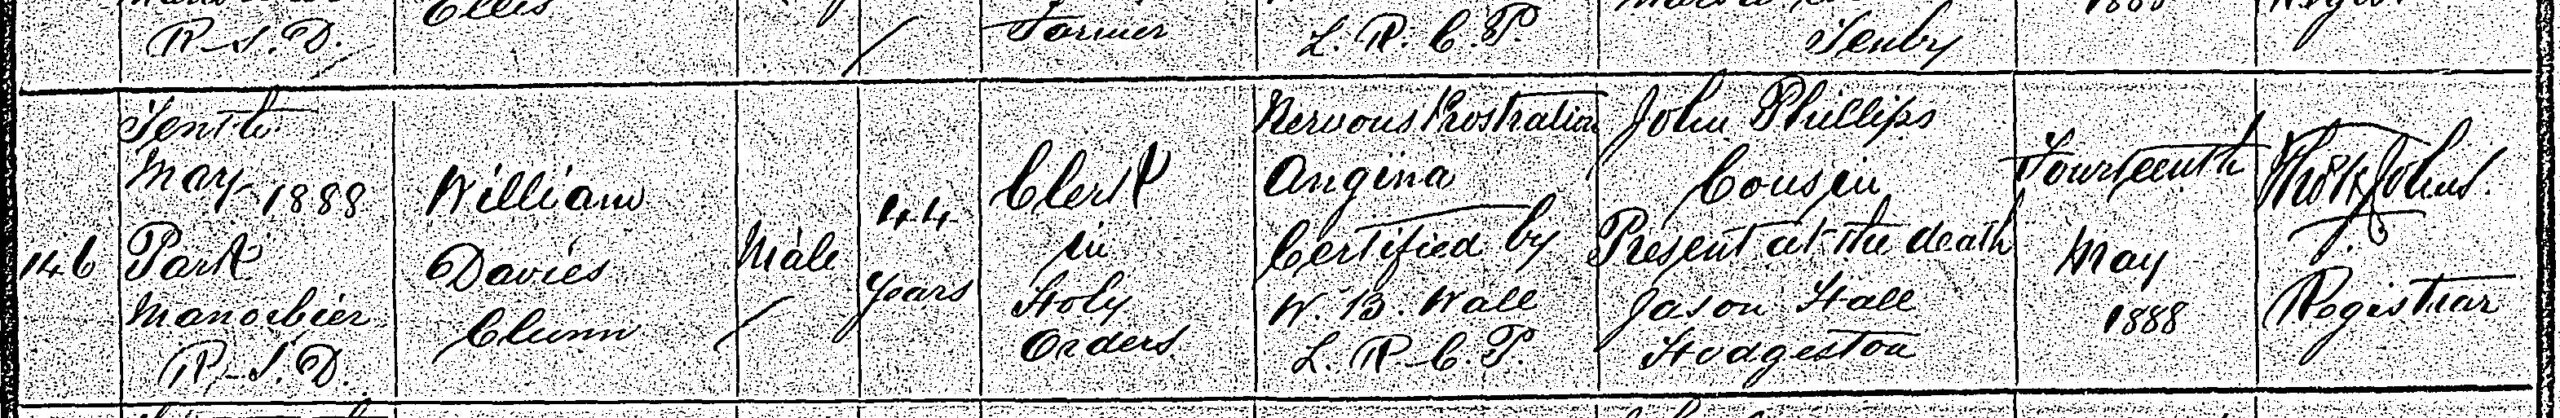 Ellis
R.S.D.
Farmer
L.R.C.P.
Tenby
146
Tenth
May 1888
Park
Manorbier
R.S.D.
William
Davies
Clunn
Male
44
years
Clerk
in
Holy
Orders
Nervous Prostration
Angina
Certified by
W. B. Wall
L.R.C.P.
John Phillips
Cousin
Present at the death
Jason Hall
Hodgeston
Fourteenth
May
1888
Johns
Registrar